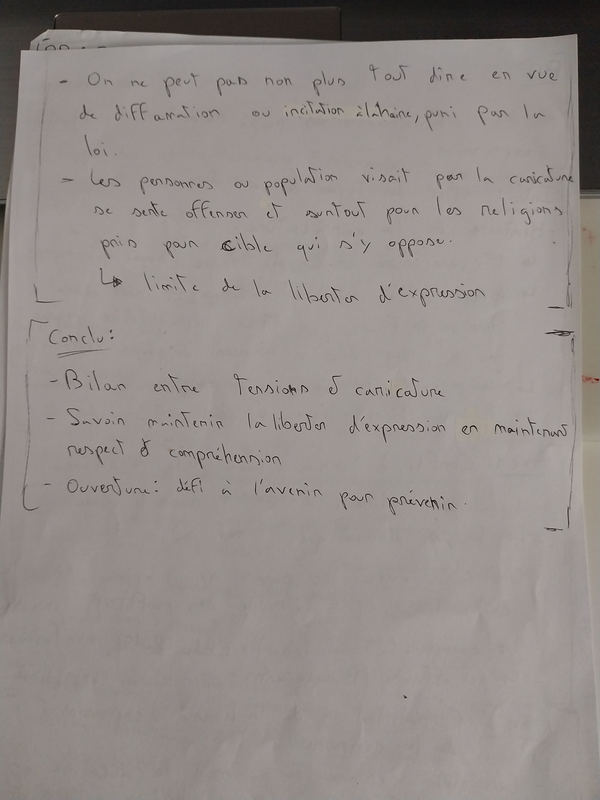 - On ne peut pas non plus tout dire en vue
de diffamation ou incitation à la haine, puni par la
loi.
- Les personnes ou population visait par la caricature
se sente offenser et surtout pour les religions
pris pour cible qui s'y oppose.
↳ limite de la liberter d'expression
Conclu:
- Bilan entre tensions et caricature
- Savoir maintenir la liberter d'expression en maintenant
respect et compréhension
- Ouverture: défi à l'avenir pour prévenir.